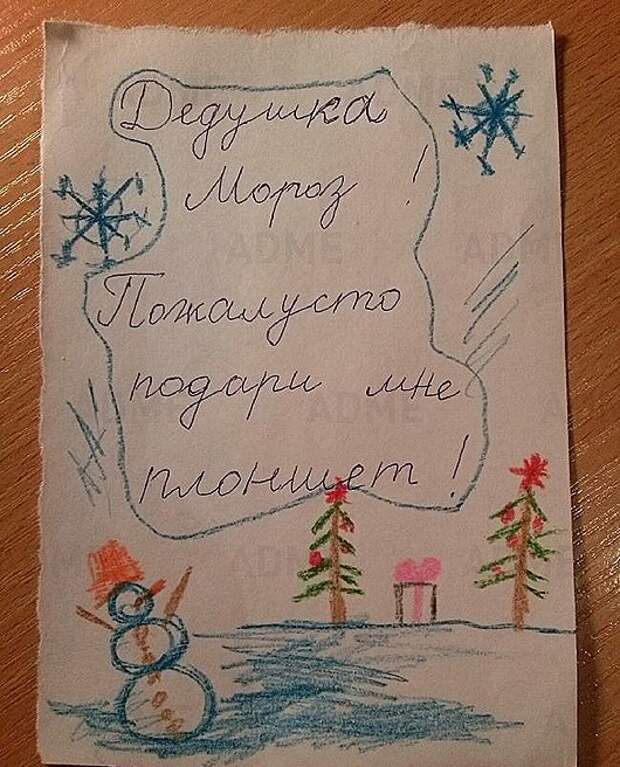 Дедушка
Мороз !
Пожалусто
подари мне
плоншет !
ADME
ADME
ADME
ADME